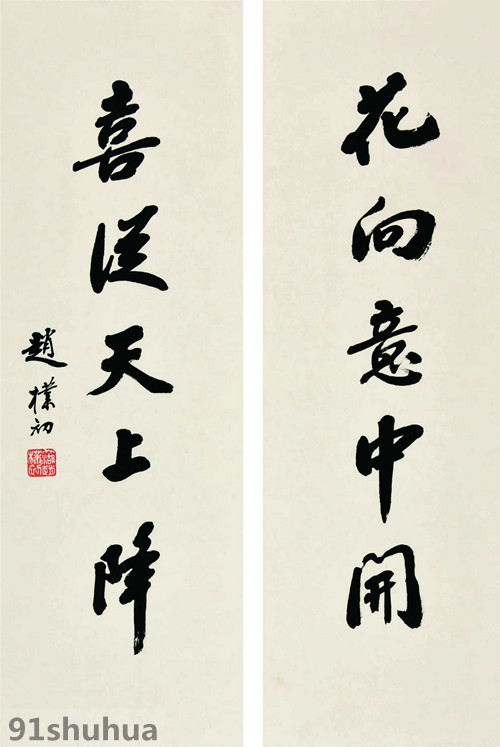 花向意中開
喜從天上降
趙樸初
91shuhua